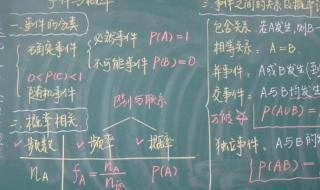 事件与概率
一.事件的分类
确定事件
必然事件 P(A)=1
不可能事件 P(B)=0
0<P(C)<1
随机事件
区别与联系
二.概率相关
✓频数 ✓频率 ✓概率
n_A f_A = n_A/n P(A)
三.事件之间的关系及概率
包含关系 若A发生,则B一
相等关系: A=B.
并事件: A或B发生(到
交事件: A与B均发生
P(A∪B)=
独立事件: A与B的
P(AB)=